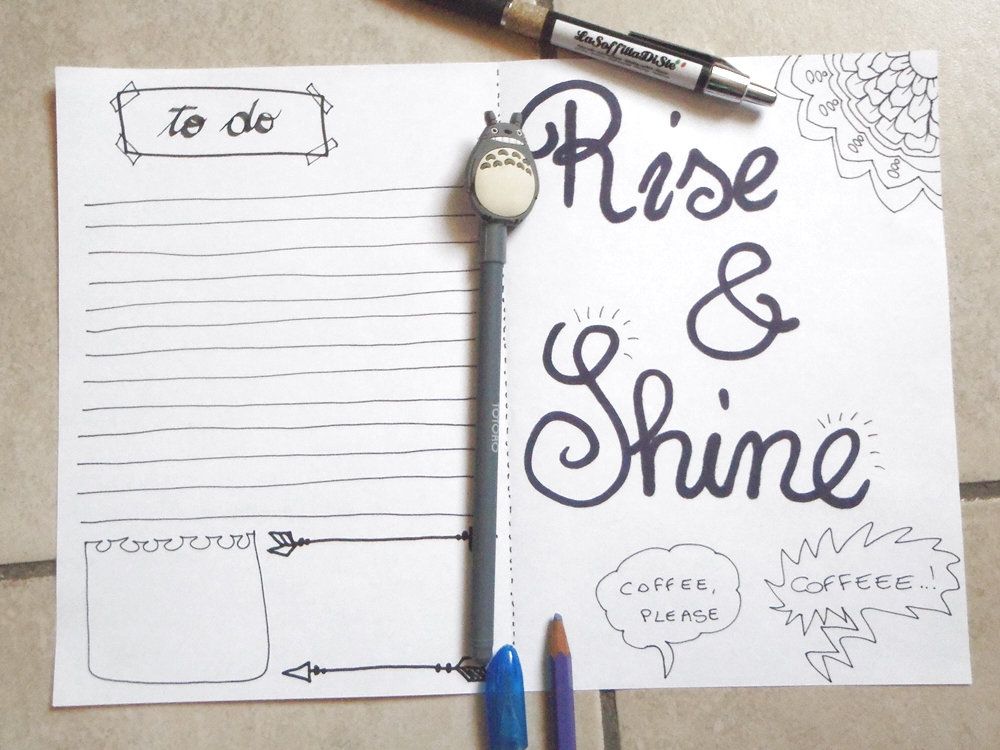 to do
LaSoffittaDiSte
TOTORO
Rise
&
Shine
COFFEE,
PLEASE
COFFEEE..!